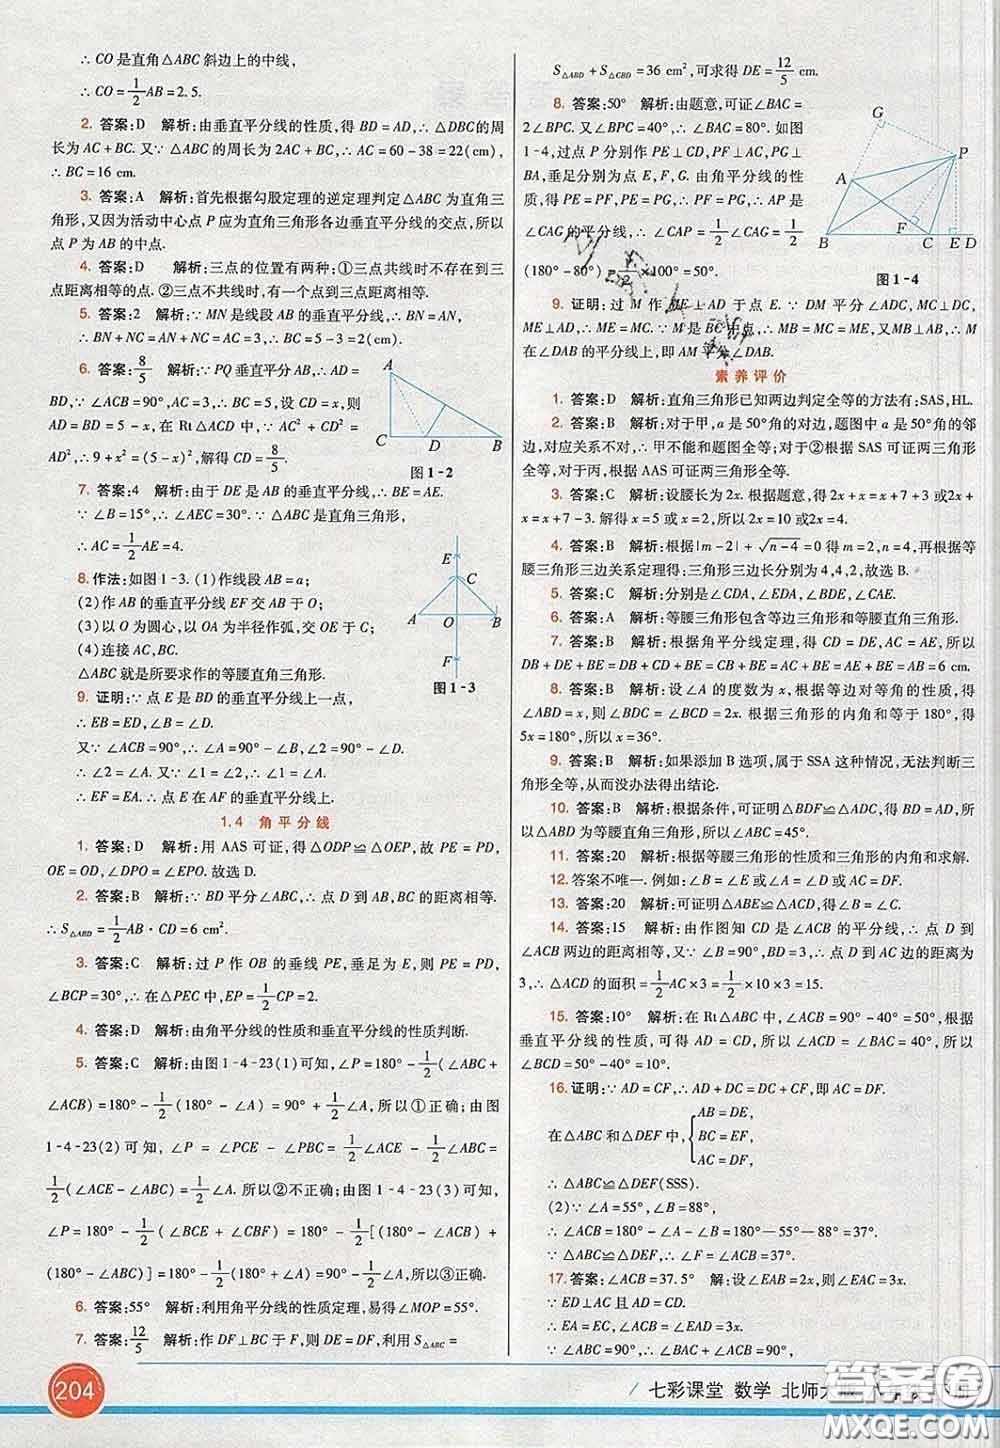 ∴ CO 是直角△ABC 斜边上的中线,
∴ CO = 1/2 AB = 2.5.
2. 答案:D 解析:由垂直平分线的性质,得 BD = AD,∴ △DBC的周
长为 AC + BC. 又∵ △ABC 的周长为 2AC + BC,∴ AC = 60 - 38 = 22(cm),
∴ BC = 16 cm.
3. 答案:A 解析:首先根据勾股定理的逆定理判定△ABC 为直角三
角形,又因为活动中心点 P 应为直角三角形各边垂直平分线的交点,所以
点 P 为 AB 的中点.
4. 答案:D 解析:三点的位置有两种:①三点共线时不存在到三
点距离相等的点. ②三点不共线时,有一个点到三点距离相等.
5. 答案:2 解析:∵ MN 是线段 AB 的垂直平分线,∴ BN = AN,
∴ BN + NC = AN + NC = AC = 3,∴ BC = 5 - 3 = 2(cm).
6. 答案:8/5 解析:∵ PQ 垂直平分 AB,∴ AD =
BD,∵ ∠ACB = 90°,AC = 3,BC = 5,设 CD = x,则
AD = BD = 5 - x,在 Rt△ACD 中,∵ AC² + CD² =
AD²,∴ 9 + x² = (5 - x)²,解得 CD = 8/5.
A
C D B
图 1-2
7. 答案:4 解析:由于 DE 是 AB 的垂直平分线,∴ BE = AE.
∵ ∠B = 15°,∴ ∠AEC = 30°. ∵ △ABC 是直角三角形,
∴ AC = 1/2 AE = 4.
8. 作法:如图 1-3. (1)作线段 AB = a;
(2)作 AB 的垂直平分线 EF 交 AB 于 O;
(3)以 O 为圆心,以 OA 为半径作弧,交 EF 于 C;
(4)连接 AC,BC.
△ABC 就是所要求作的等腰直角三角形.
E
C
A O B
F
图 1-3
9. 证明:∵ 点 E 是 BD 的垂直平分线上一点,
∴ EB = ED,∠B = ∠D.
又∵ ∠ACB = 90°,∴ ∠A = 90° - ∠B,∠2 = 90° - ∠D.
∴ ∠2 = ∠A. 又∵ ∠1 = ∠2,∴ ∠1 = ∠A.
∴ EF = EA. ∴ 点 E 在 AF 的垂直平分线上.
1.4 角平分线
1. 答案:D 解析:用 AAS 可证,得△ODP≌△OEP,故 PE = PD,
OE = OD,∠DPO = ∠EPO. 故选 D.
2. 答案:B 解析:∵ BD 平分∠ABC,∴ 点 D 到 AB,BC 的距离相等.
∴ S△ABD = 1/2 AB · CD = 6 cm².
3. 答案:C 解析:过 P 作 OB 的垂线 PE,垂足为 E,则 PE = PD,
∠BCP = 30°,∴ 在△PEC 中,EP = 1/2 CP = 2.
4. 答案:D 解析:由角平分线的性质和垂直平分线的性质判断.
5. 答案:C 解析:由图 1-4-23(1)可知,∠P = 180° - 1/2(∠ABC +
∠ACB) = 180° - 1/2(180° - ∠A) = 90° + 1/2∠A,所以①正确;由图
1-4-23(2)可知,∠P = ∠PCE - ∠PBC = 1/2∠ACE - 1/2∠ABC =
1/2(∠ACE - ∠ABC) = 1/2∠A. 所以②不正确;由图 1-4-23(3)可知,
∠P = 180° - 1/2(∠BCE + ∠CBF) = 180° - 1/2[(180° - ∠ACB) +
(180° - ∠ABC)] = 180° - 1/2(180° + ∠A) = 90° - 1/2∠A,所以③正确.
6. 答案:55° 解析:利用角平分线的性质定理,易得∠MOP = 55°.
7. 答案:12/5 解析:作 DF⊥BC 于 F,则 DE = DF,利用 S△ABC =
S△ABD + S△CBD = 36 cm²,可求得 DE = 12/5 cm.
8. 答案:50° 解析:由题意,可证∠BAC =
2∠BPC. 又∵ ∠BPC = 40°,∴ ∠BAC = 80°. 如图
1-4,过点 P 分别作 PE⊥CD,PF⊥AC,PG⊥
BA,垂足分别为点 E,F,G. 由角平分线的性质,
易得 PE = PF,PE = PG,∴ PF = PG,∴ AP 是
∠CAG 的平分线,∴ ∠CAP = 1/2∠CAG = 1/2
(180° - 80°) = 1/2 × 100° = 50°.
G
P
A
F
B C E D
图 1-4
9. 证明:过 M 作 ME⊥AD 于点 E. ∵ DM 平分∠ADC,MC⊥DC,
ME⊥AD,∴ MC = ME. ∵ M 是 BC 中点,∴ MB = MC = ME,又MB⊥AB,∴ M
在∠DAB 的平分线上,即 AM 平分∠DAB.
素养评价
1. 答案:D 解析:直角三角形已知两边判定全等的方法有:SAS,HL.
2. 答案:B 解析:对于甲,a 是50°角的对边,题图中 a 是50°角的邻
边,对应关系不对,∴ 甲不能和题图全等;对于②根据 SAS 可证两三角形全
等,对于丙,根据 AAS 可证两三角形全等.
3. 答案:C 解析:设腰长为 2x. 根据题意,得 2x + x = x + 7 + 3 或2x +
x = x + 7 - 3. 解得 x = 5 或 x = 2,所以 2x = 10 或2x = 4.
4. 答案:B 解析:根据|m - 2| + √(n - 4) = 0 得 m = 2,n = 4,再根据等
腰三角形三边关系定理得:三角形三边长分别为 4,4,2,故选 B.
5. 答案:C 解析:分别是∠CDA,∠EDA,∠BDE,∠CAE.
6. 答案:A 解析:等腰三角形包含等边三角形和等腰直角三角形.
7. 答案:B 解析:根据角平分线定理,得 CD = DE,AC = AE,所以
DB + DE + BE = DB + CD + BE = CB + BE = AC + BE = AE + BE = AB = 6 cm.
8. 答案:B 解析:设∠A 的度数为 x,根据等边对等角的性质,得
∠ABD = x,则∠BDC = ∠BCD = 2x. 根据三角形的内角和等于180°,得
5x = 180°,所以 x = 36°.
9. 答案:B 解析:如果添加 B 选项,属于 SSA 这种情况,无法判断三
角形全等,从而没办法得出结论.
10. 答案:B 解析:根据条件,可证明△BDF≌△ADC,得 BD = AD,所
以△ABD 为等腰直角三角形,所以∠ABC = 45°.
11. 答案:20 解析:根据等腰三角形的性质和三角形的内角和求解.
12. 答案不唯一. 例如:∠B = ∠E 或∠A = ∠D 或 AC = DF.
13. 答案:20 解析:可证明△ABE≌△ACD,得∠B = ∠C.
14. 答案:15 解析:由作图知 CD 是∠ACB 的平分线,∴ 点 D 到
∠ACB 两边的距离相等,又∵ ∠B = 90°,BD = 3,∴ 点 D 到 AC 边的距离为
3,∴ △ACD 的面积 = 1/2 AC × 3 = 1/2 × 10 × 3 = 15.
15. 答案:10° 解析:在 Rt△ABC 中,∠ACB = 90° - 40° = 50°,根据
垂直平分线的性质,可得 AD = CD,所以∠ACD = ∠BAC = 40°,所以
∠BCD = 50° - 40° = 10°.
16. 证明:∵ AD = CF,∴ AD + DC = CF + CD,即 AC = DF.
在△ABC 和△DEF 中,{AB = DE,
BC = EF,
AC = DF,
∴ △ABC≌△DEF(SSS).
(2)∵ ∠A = 55°,∠B = 88°,
∴ ∠ACB = 180° - ∠A - ∠B = 180° — 55° — 88° = 37°.
∵ △ABC≌△DEF,∴ ∠F = ∠ACB = 37°.
17. 答案:∠ACB = 37.5° 解:设∠EAB = 2x,则∠CAE = x.
∵ ED⊥AC 且 AD = CD,
∴ EA = EC,∠ECA = ∠CAE = x,
∵ ∠ABC = 90°,∴ ∠BAC + ∠ACB = 90°,
204
七彩课堂 数学 北师大版
答案圈
MXQE.COM